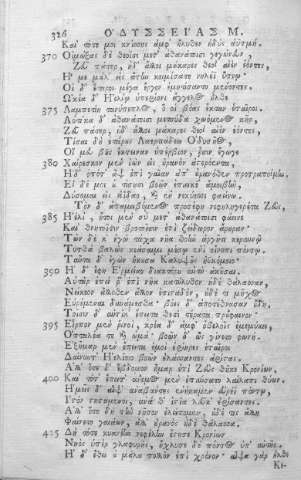 326 ΟΔΥΣΣΕΙΑΣ Μ.
Καὶ τότε με κνίσσης ἀμφήλυθεν ἡδὺς ἀϋτμή.
370 Οἰμώξας δὲ θεοῖσι μετ' ἀθανάτοισι γεγώνευν,
Ζεῦ πάτερ, ἠδ' ἄλλοι μάκαρες θεοὶ αἰὲν ἐόντες,
Ἦ με μάλ' εἰς ἄτην κοιμήσατε νηλέϊ ὕπνῳ·
Οἱ δ' ἕταροι μέγα ἔργον ἐμητίσαντο μένοντες.
Ὠκέα δ' Ἠελίῳ ὑπερίονι ἄγγελος ἦλθε
375 Λαμπετίη τανύπεπλος, ὅ οἱ βόας ἔκταν ἑταῖροι.
Αὐτίκα δ' ἀθανάτοισι μετηύδα χωόμενος κῆρ,
Ζεῦ πάτερ, ἠδ' ἄλλοι μάκαρες θεοὶ αἰὲν ἐόντες,
Τῖσαι δὴ ἑτάρους Λαερτιάδεω Ὀδυσῆος,
Οἵ μευ βοῦς ἔκτειναν ὑπέρβιον, ᾗσιν ἔγωγε
380 Χαίρεσκον μὲν ἰὼν εἰς οὐρανὸν ἀστερόεντα,
Ἠδ' ὁπότ' ἂψ ἐπὶ γαῖαν ἀπ' οὐρανόθεν προτραποίμην.
Εἰ δέ μοι οὐ τίσουσι βοῶν ἐπιεικέ' ἀμοιβὴν,
Δύσομαι εἰς ἀΐδαο, καὶ ἐν νεκύεσσι φαείνω.
Τὸν δ' ἀπαμειβόμενος προσέφη νεφεληγερέτα Ζεύς.
385 Ἠέλι', ἤτοι μὲν σὺ μετ' ἀθανάτοισι φάεινε
Καὶ θνητοῖσι βροτοῖσιν ἐπὶ ζείδωρον ἄρουραν·
Τῶν δέ κ' ἐγὼ τάχα νῆα θοὴν ἀργῆτι κεραυνῷ
Τυτθὰ βαλὼν κεάσαιμι μέσῳ ἐνὶ οἴνοπι πόντῳ.
Ταῦτα δ' ἐγὼν ἤκουσα Καλυψοῦς ἠϋκόμοιο·
390 Ἡ δ' ἔφη Ἑρμείαο διακτόρου αὐτὴ ἀκοῦσαι.
Αὐτὰρ ἐπεί ῥ' ἐπὶ νῆα κατήλυθον ἠδὲ θάλασσαν,
Νείκεον ἄλλοθεν ἄλλον ἐπισταδὸν, οὐδέ τι μῆχος
Εὑρέμεναι δυνάμεσθα· βόες δ' ἀποτέθνασαν ἤδη.
Τοῖσιν δ' αὐτίκ' ἔπειτα θεοὶ τέραα προὔφαινον·
395 Εἷρπον μὲν ῥινοὶ, κρέα δ' ἀμφ' ὀβελοῖς ἐμεμύκει,
Ὀπταλέα τε καὶ ὠμά· βοῶν δ' ὣς γίνετο φωνή.
Ἑξῆμαρ μὲν ἔπειτα ἐμοὶ ἐρίηρες ἑταῖροι
Δαίνυντ' Ἠελίοιο βοῶν ἐλάσαντες ἀρίστας.
Ἀλλ' ὅτε δ' ἕβδομον ἦμαρ ἐπὶ Ζεὺς θῆκε Κρονίων,
400 Καὶ τότ' ἔπειτ' ἄνεμος μὲν ἐπαύσατο λαίλαπι θύων.
Ἡμεῖς δ' αἶψ' ἀναβάντες ἐνήκαμεν εὐρέϊ πόντῳ,
Ἱστὸν στησάμενοι, ἀνά θ' ἱστία λεύκ' ἐρύσαντες.
Ἀλλ' ὅτε δὴ τὴν νῆσον ἐλείπομεν, οὐδέ τις ἄλλη
Φαίνετο γαιάων, ἀλλ' οὐρανὸς ἠδὲ θάλασσα,
405 Δὴ τότε κυανέην νεφέλην ἔστησε Κρονίων
Νηὸς ὕπερ γλαφυρῆς, ἤχλυσε δὲ πόντος ὑπ' αὐτῆς.
Ἡ δ' ἔθει οὐ μάλα πολλὸν ἐπὶ χρόνον· αἶψα γὰρ ἦλθε
Κε-